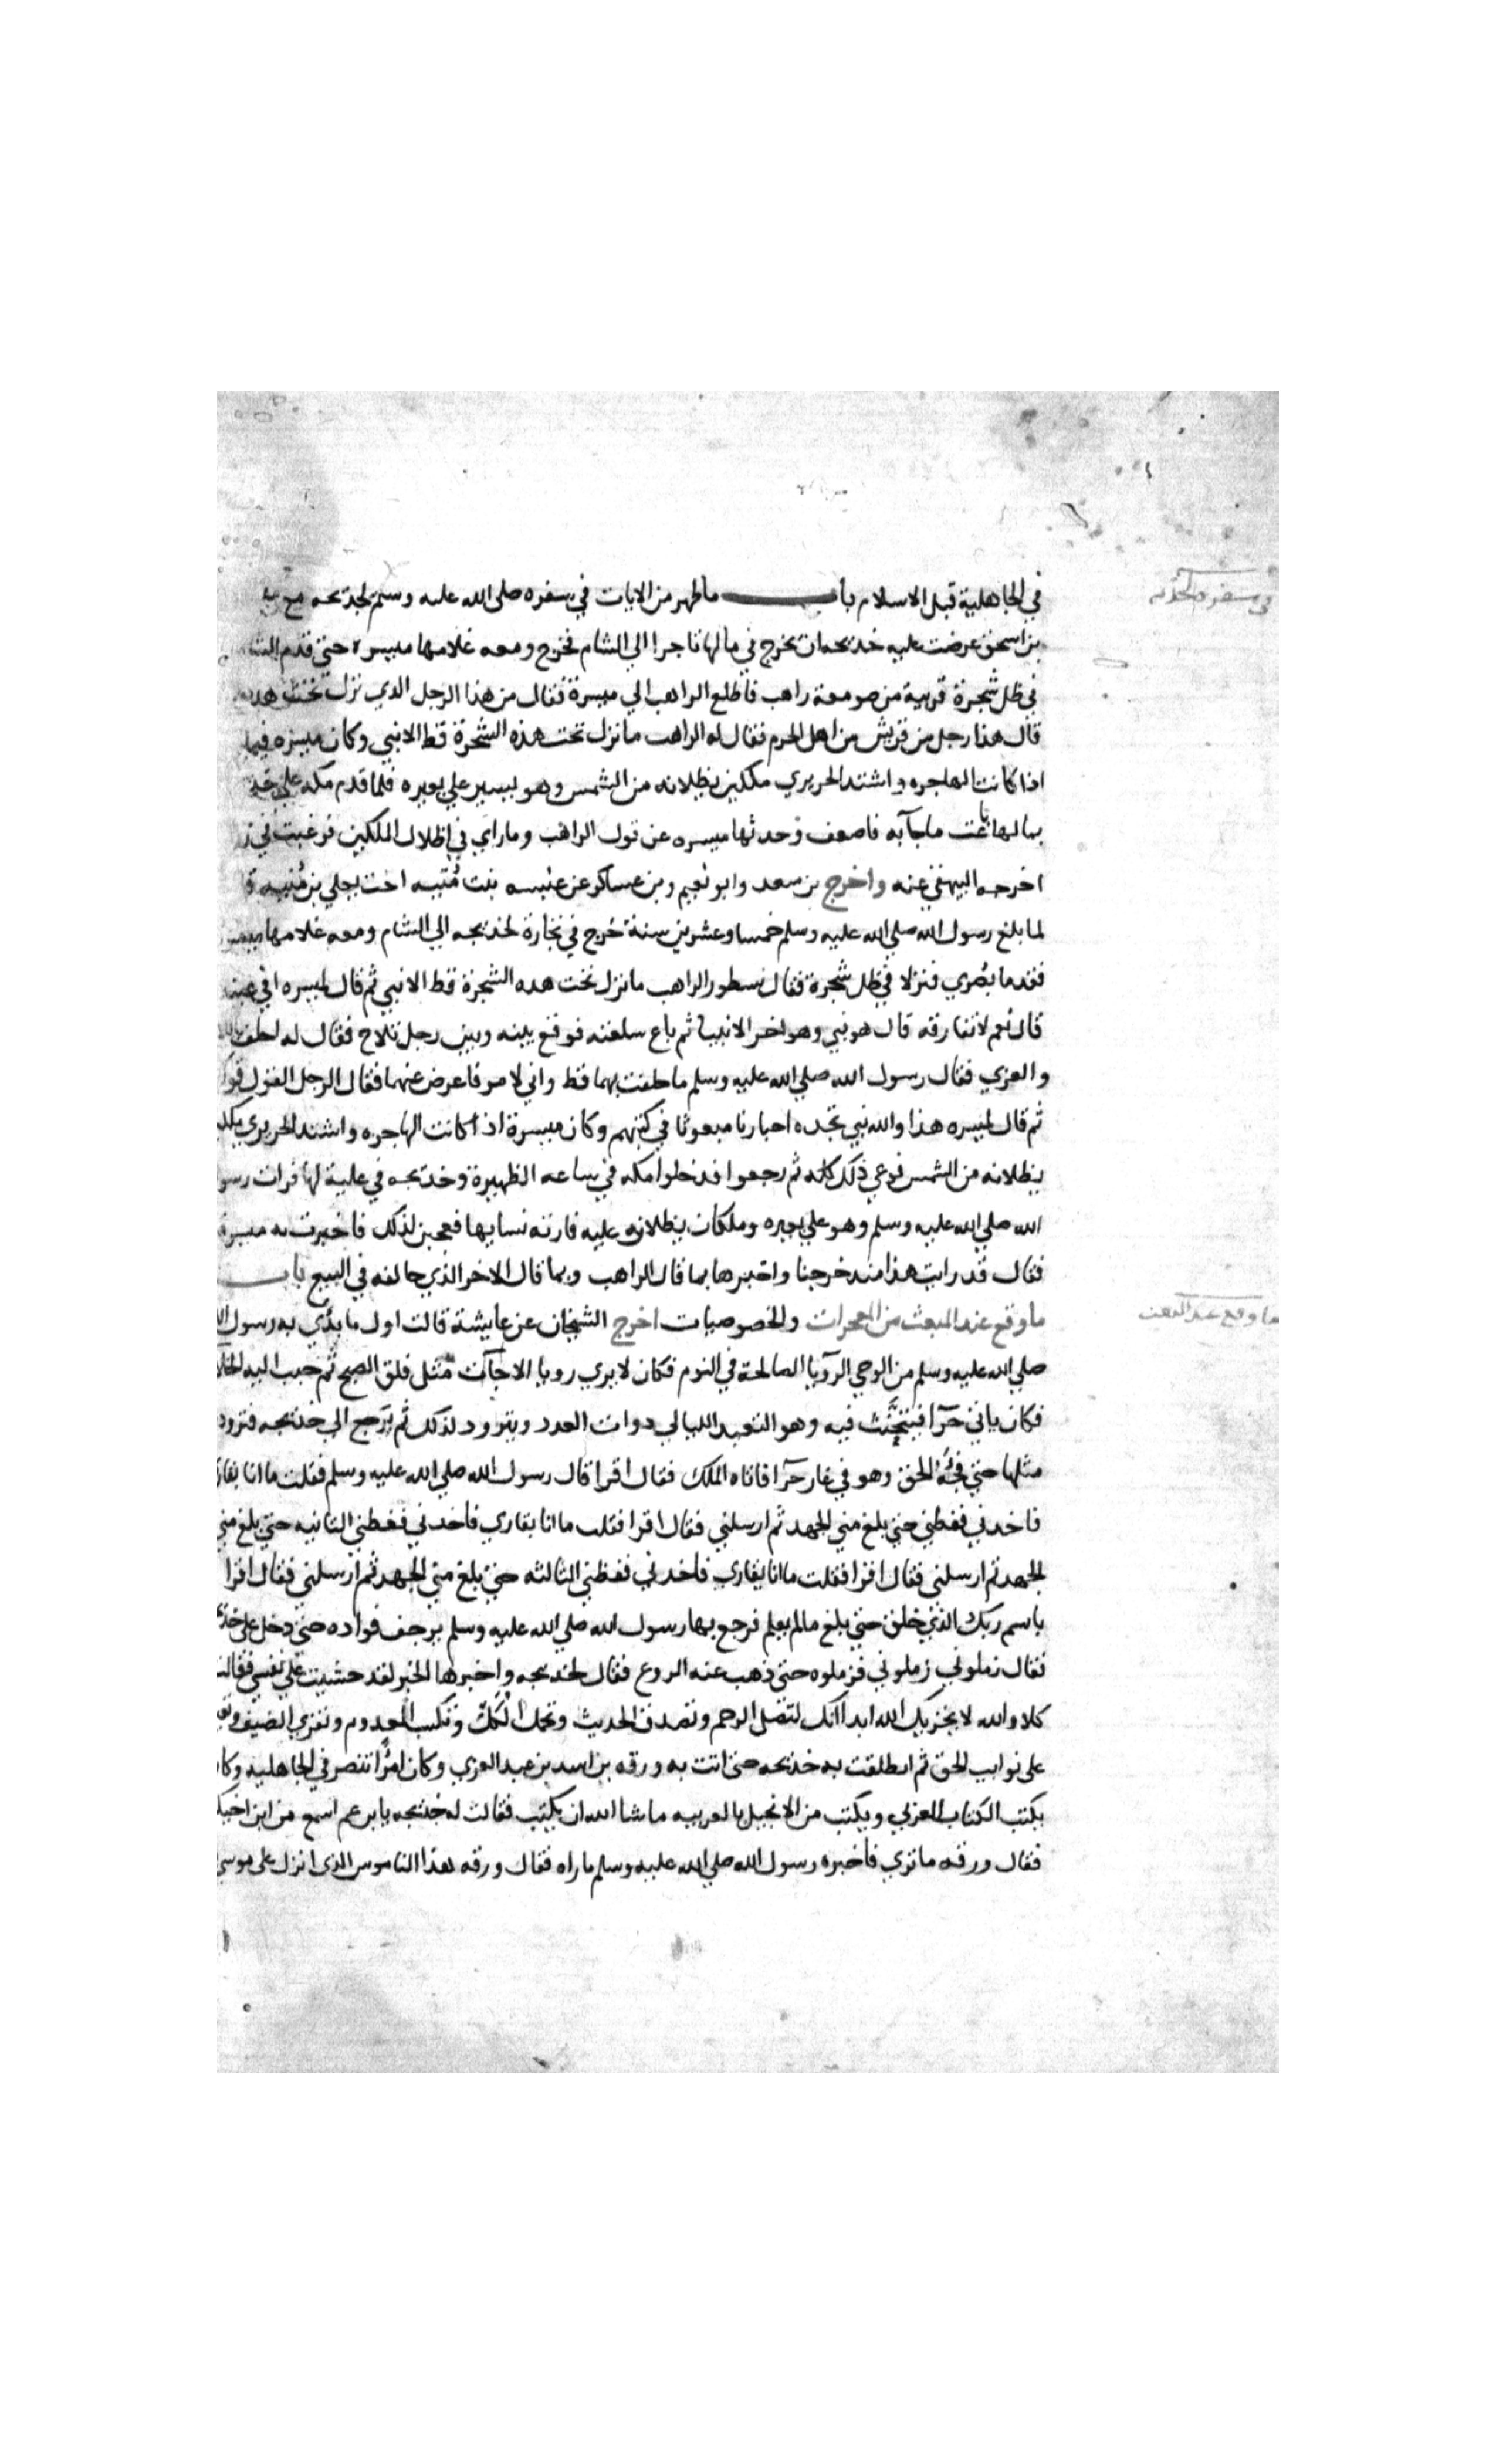 في الجاهلية قبل الاسلام باب ما ظهر من الايات في سفره صلى الله عليه وسلم لخديجه مع
في سفره لخديجه
بن اسحق عرضت عليه خديجه ان يخرج في مالها تاجرا الي الشام فخرج ومعه غلامها ميسره حتى قدم الشا
في ظل شجرة قريبة من صومعة راهب فاطلع الراهب الي ميسرة فقال من هذا الرجل الذي نزل تحت هده
قال هذا رجل من قريش من اهل الحرم فقال له الراهب ما نزل تحت هذه الشجرة قط الا نبي وكان ميسره فيما
اذا كانت الهاجره واشتد الحر يري ملكين يظلانه من الشمس وهو يسير علي بعيره فلما قدم مكه علي خد
بمالها باعت ما جآبه فاصعف وحدثها ميسره عن قول الراهب وما راي في اظلال الملكين فرغبت في
اخرجه البيهقي عنه واخرج بن سعد وابو نعيم وبن عساكر عن نفيسه بنت منيه اخت يعلي بن منيه
لما بلغ رسول الله صلي الله عليه وسلم خمسا وعشرين سنة خرج في تجارة لخديجه الي الشام ومعه غلامها
فقدما بصري فنزلا في ظل شجرة فقال نسطور الراهب ما نزل تحت هده الشجرة قط الا نبي ثم قال لميسره افي
قال نعم لا تفارقه قال هو نبي وهو اخر الانبيا ثم باع سلعته فوقع بينه وبين رجل تلاح فقال له احلف
والعزي فقال رسول الله صلي الله عليه وسلم ما حلفت بهما قط واني لامر فاعرض عنهما فقال الرجل القول
ثم قال لميسره هذا والله نبي تجده احبارنا مبعوثا في كتبهم وكان ميسرة اذا كانت الهاجره واشتد الحر يري
يظلانه من الشمس فوعي ذلك كله ثم رجعوا فدخلوا مكه في ساعه الظهيرة وخديجه في علية لها فرات رسو
الله صلي الله عليه وسلم وهو علي بعيره وملكان يظلان عليه فارته نسايها فعجبن لذلك فاخبرت به ميسرة
فقال قد رايت هذا مند خرجنا واخبرها بما قال الراهب وبما قال الاخر الذي خالفه في البيع باب
ما وقع عند المبعث من المعجزات والخصوصيات اخرج الشيخان عن عايشة قالت اول ما بدي به رسول
ما وقع عند المبعث
صلي الله عليه وسلم من الوحي الرويا الصالحة في النوم فكان لا يري رويا الا جآت مثل فلق الصبح ثم حبب اليه الخلا
فكان ياتي حرآ فيتحنث فيه وهو التعبد الليالي دوات العدد ويتزود لذلك ثم يرجع الي خديجه فتزود
مثلها حتي فجئه الحق وهو في غار حرآ فاتاه الملك فقال اقرا قال رسول الله صلي الله عليه وسلم فقلت ما انا بقار
فاخدني فغطني حتي بلغ مني الجهد ثم ارسلني فقال اقرا فقلت ما انا بقاري فاخدني فغطني الثانيه حتي بلغ مني
الجهد ثم ارسلني فقال اقرا فقلت ما انا بقاري فاخدني فغطني الثالثه حتي بلغ مني الجهد ثم ارسلني فقال اقرا
باسم ربك الذي خلق حتي بلغ ما لم يعلم فرجع بها رسول الله صلي الله عليه وسلم يرجف فواده حتي دخل علي خد
فقال زملوني زملوني فزملوه حتى ذهب عنه الروع فقال لخديجه واخبرها الخبر لقد خشيت علي نفسي فقالت
كلا والله لا يخزيك الله ابدا انك لتصل الرحم وتصدق الحديث وتحمل الكل وتكسب المعدوم وتقري الضيف
على نوايب الحق ثم انطلقت به خديجه حتى اتت به ورقه بن اسد بن عبد العزي وكان امرًا تنصر في الجاهليه وكا
يكتب الكتاب العربي ويكتب من الانجيل بالعربيه ما شا الله ان يكتب فقالت له خديجه يا بن عم اسمع من ابن اخيك
فقال ورقه ما تري فاخبره رسول الله صلي الله عليه وسلم ما راه فقال ورقه هذا الناموس الذي انزل على موسي